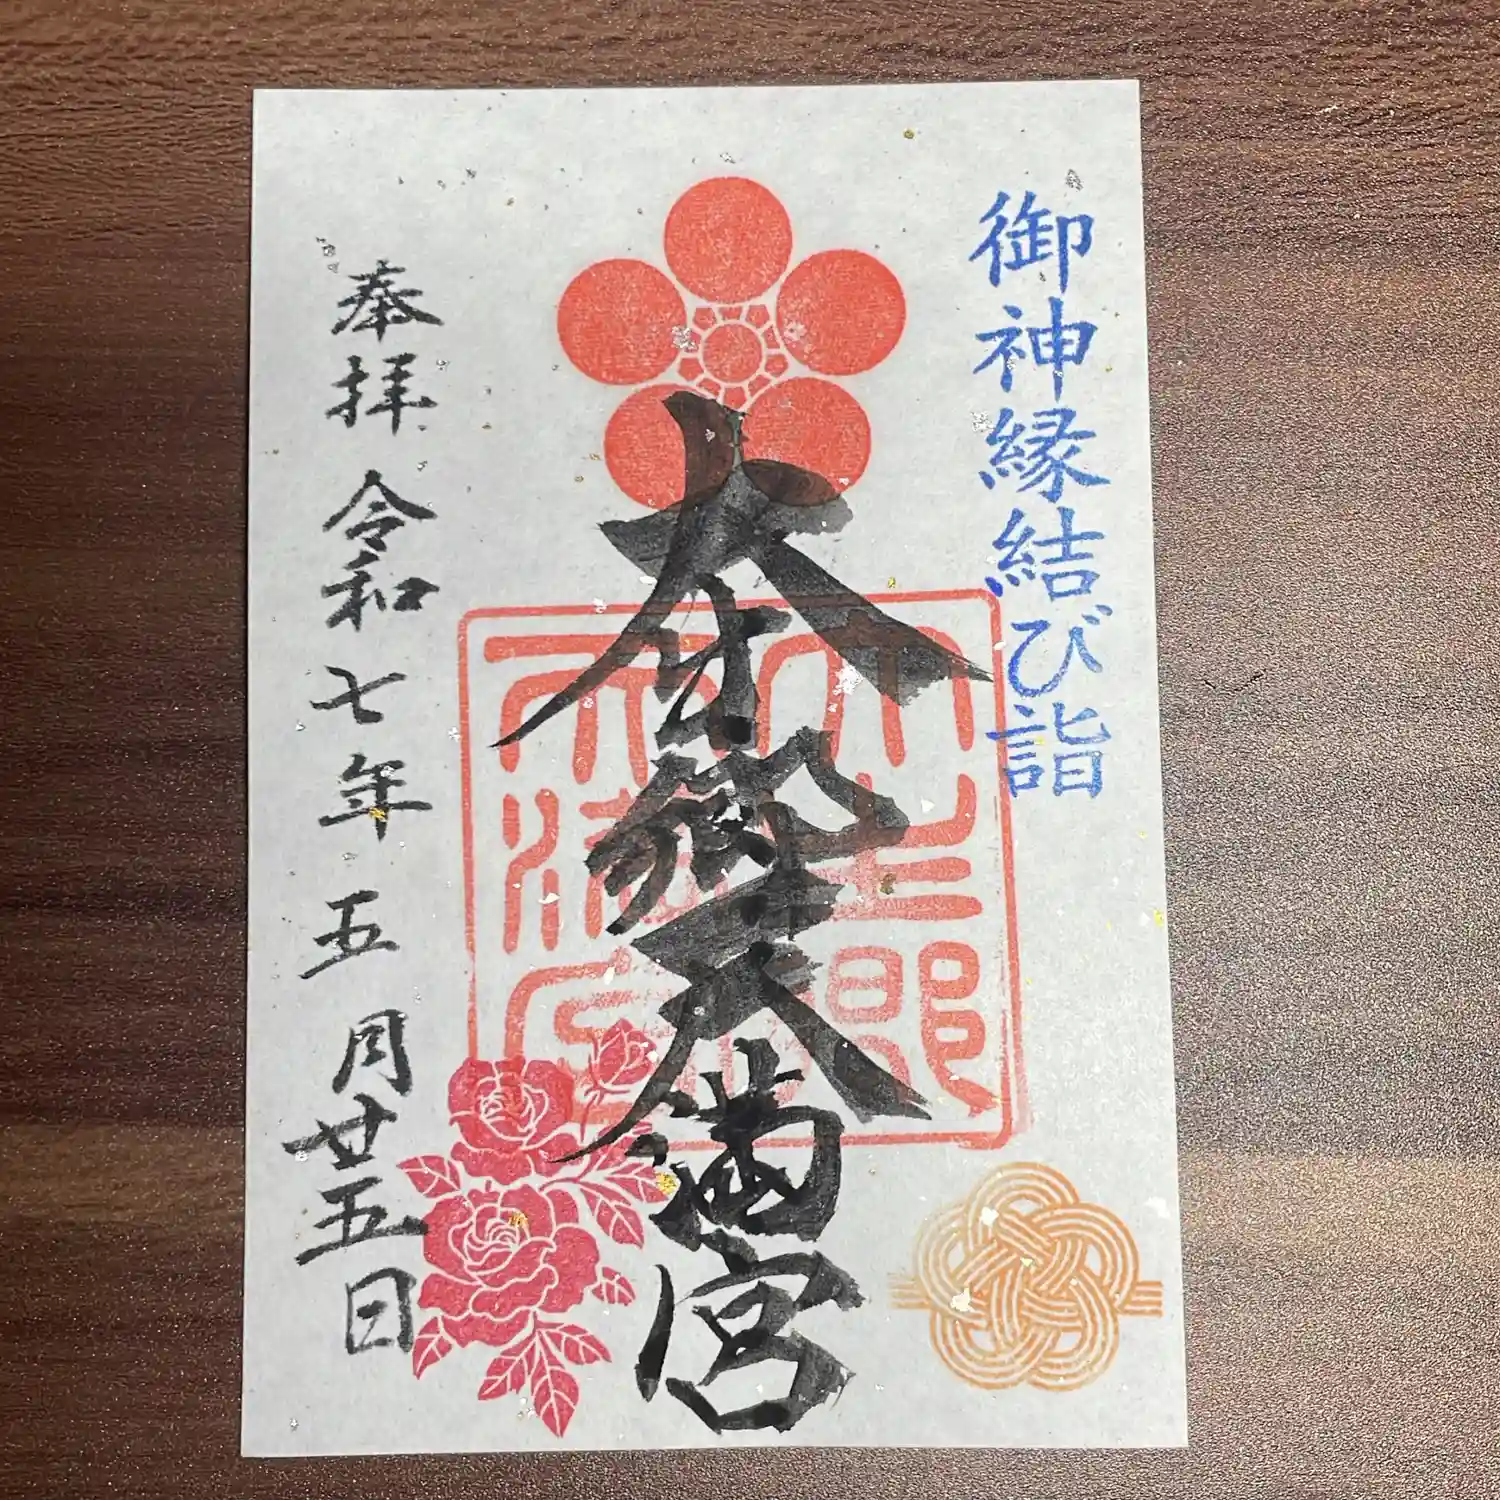 御神縁結び詣
大生郷天満宮
奉拝 令和七年五月廿五日